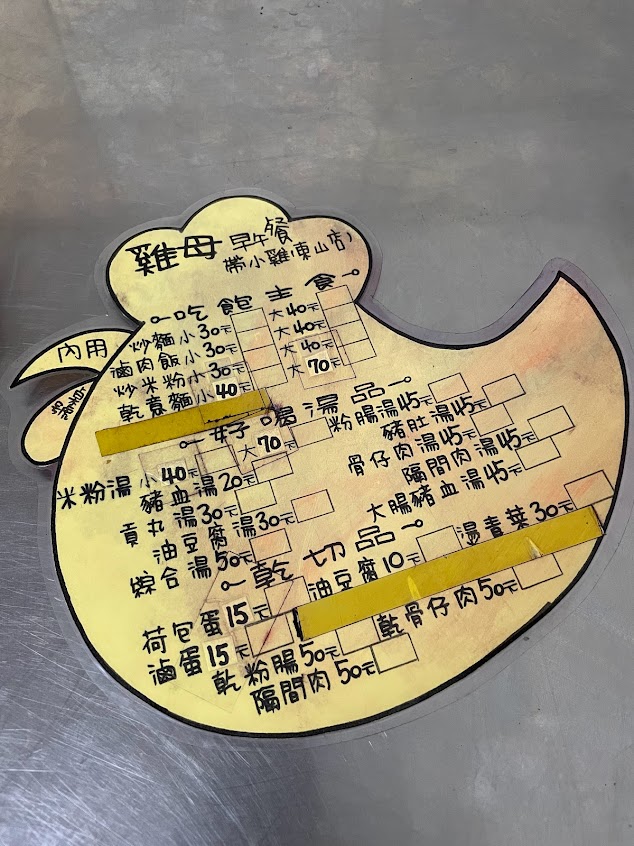 雞母早午餐
帶小雞(東山店)
內用
吃飽主食
炒麵小30元 大40元
滷肉飯小30元 大40元
炒米粉小30元 大40元
乾意麵小40 大70元
好喝湯品
米粉湯小40元 大70元
豬血湯20元
貢丸湯30元
油豆腐湯30元
綜合湯50元
粉腸湯45元
豬肚湯45元
骨仔肉湯45元
隔間肉湯45元
大腸豬血湯45元
乾切品
荷包蛋15元
滷蛋15元
乾粉腸50元
隔間肉50元
油豆腐10元
燙青菜30元
乾骨仔肉50元